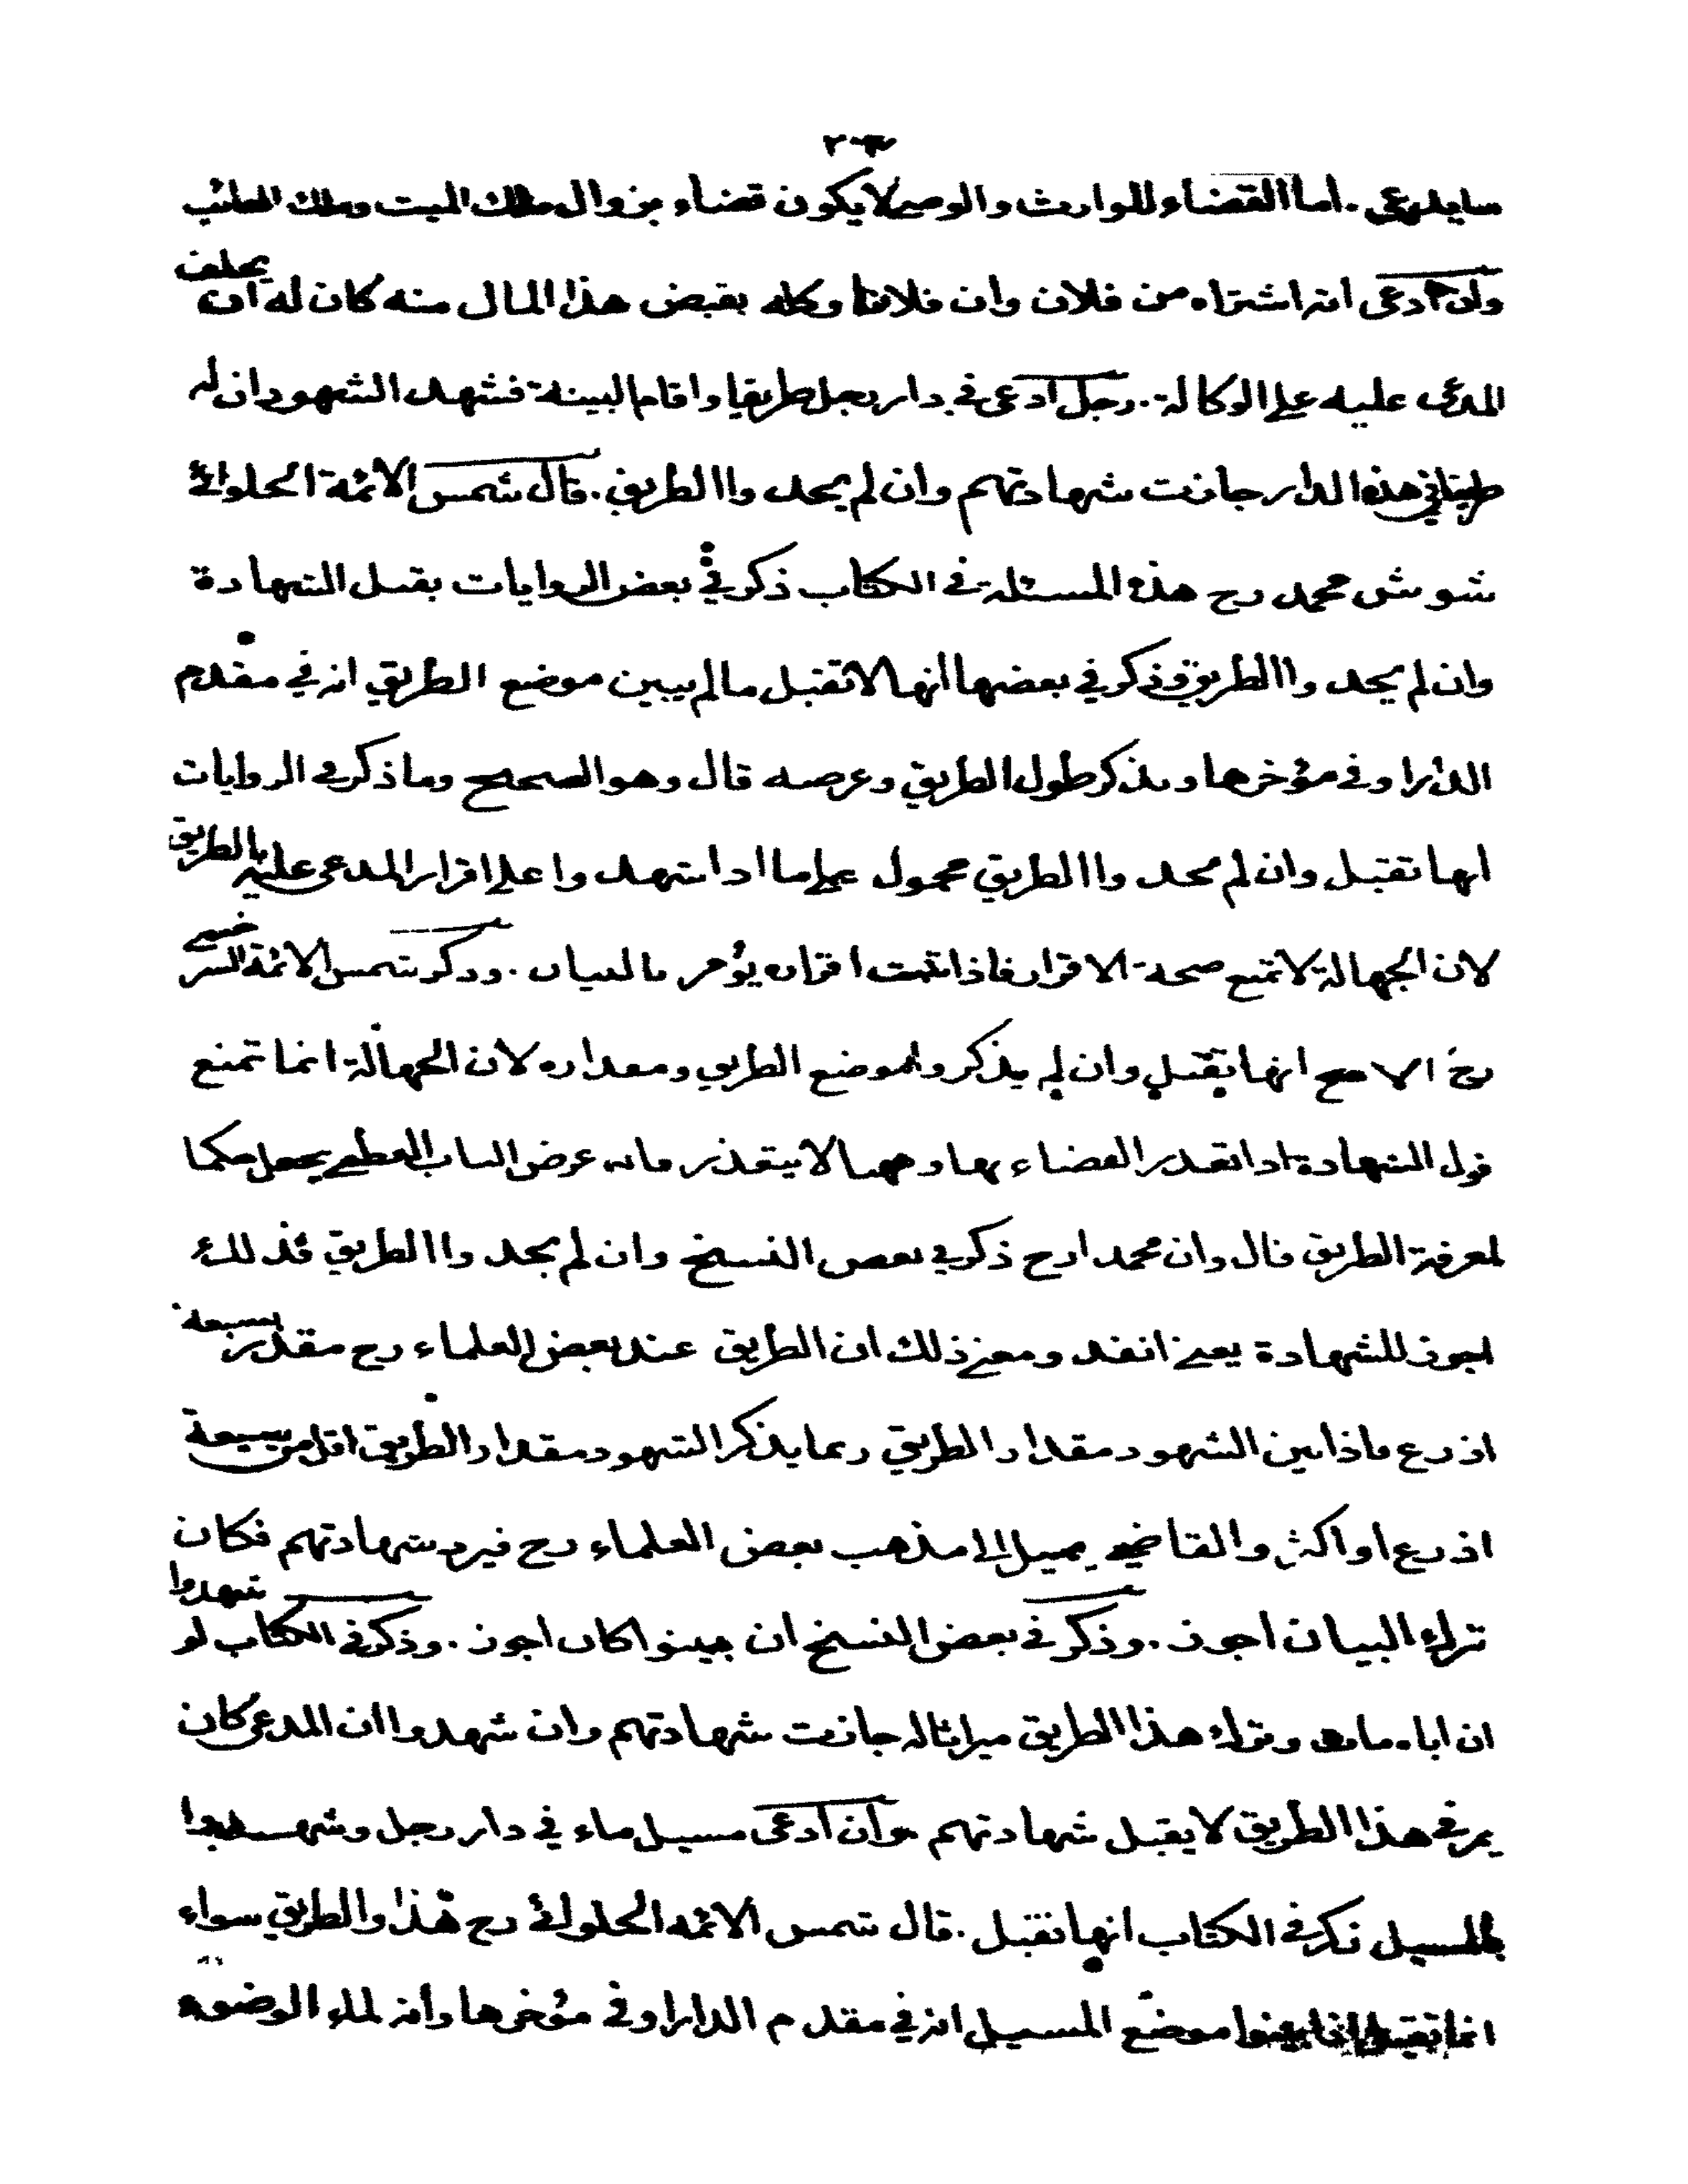 ما يدعى . اما القضاء للوارث والوصى لا يكون قضاء بزوال ملك الميت وملك الغائب
وان ادعى انه اشتراه من فلان وان فلانا وكله بقبض هذا المال منه كان له ان يحلف
المدعى عليه على الوكالة . رجل ادعى في دار رجل طريقا واقام البينة فشهد الشهود ان له
طريقا في هذه الدار جازت شهادتهم وان لم يحدوا الطريق . قال شمس الائمة الحلوائى
شوش محمد رح هذه المسئلة في الكتاب ذكر في بعض الروايات تقبل الشهادة
وان لم يحدوا الطريق وذكر في بعضها انها لا تقبل ما لم يبين موضع الطريق انه في مقدم
الدار او في مؤخرها ويذكر طول الطريق وعرضه قال وهو الصحيح وما ذكر في الروايات
انها تقبل وان لم يحدوا الطريق محمول على ما اذا شهدوا على اقرار المدعى عليه بالطريق
لان الجهالة لا تمنع صحة الاقرار فاذا ثبت اقراره يؤمر بالبيان . وذكر شمس الائمة السرخسى
رح الاصح انها تقبل وان لم يذكروا موضع الطريق ومقداره لان الجهالة انما تمنع
قبول الشهادة اذا تعذر القضاء بها وههنا لا يتعذر فانه عرض الباب العظمى يجعل حكما
لمعرفة الطريق قال وان محمدا رح ذكر في بعض النسخ وان لم يحدوا الطريق فذلك
اجوز للشهادة يعنى انفذ ومعنى ذلك ان الطريق عند بعض العلماء رح مقدر بسبعة
اذرع فاذا بين الشهود مقدار الطريق ربما يذكر الشهود مقدار الطريق اقل من سبعة
اذرع او اكثر والقاضى يميل الى مذهب بعض العلماء رح فيرد شهادتهم فكان
ترك البيان اجوز . وذكر في بعض النسخ ان بينوا كان اجوز . وذكر في الكتاب لو شهدوا
ان اباه مات وترك هذا الطريق ميراثا له جازت شهادتهم وان شهدوا ان المدعى كان
يمر في هذا الطريق لا يقبل شهادتهم وان ادعى مسيل ماء في دار رجل وشهدوا
بالمسيل ذكر في الكتاب انها تقبل . قال شمس الائمه الحلوائى رح هذا والطريق سواء
انما تقبل اذا بينوا موضع المسيل انه في مقدم الدار او في مؤخرها وانه لماء الوضوء